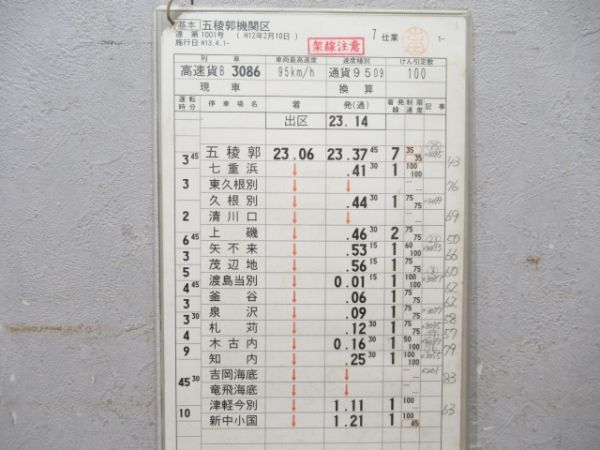 基本 五稜郭機関区
達 第1001号 (H12年2月10日) 7 仕業
施行日 H13.4.1- 架線注意 1-
列車 車両最高速度 速度種別 けん引定数
高速貨B 3086 95km/h 通貨95 D9 100
現車 換算
運転時分 停車場名 着 発(通) 着発線 制限速度 記事
出区 23.14
3 45 五稜郭 23.06 23.37 45 7 35 35
七重浜 ↓ .41 30 1 100 100 43
3 東久根別 ↓ ↓ 76
久根別 ↓ .44 30 1 75 75
2 清川口 ↓ ↓ 69
上磯 ↓ .46 30 2 75 75
6 45 矢不来 ↓ .53 15 1 60 100 50
3 茂辺地 ↓ .56 15 1 75 75 66
5 渡島当別 ↓ 0.01 15 1 75 75 60
釜谷 ↓ .06 1 62
3 泉沢 ↓ .09 1 75 75 62
3 30 札苅 ↓ .12 30 1 58
4 木古内 ↓ 0.16 30 1 50 100 57
9 知内 ↓ .25 30 1 100 100 79
吉岡海底 ↓ ↓
45 30 竜飛海底 ↓ ↓ 83
津軽今別 ↓ 1.11 1 100
10 新中小国 ↓ 1.21 1 100 45 63